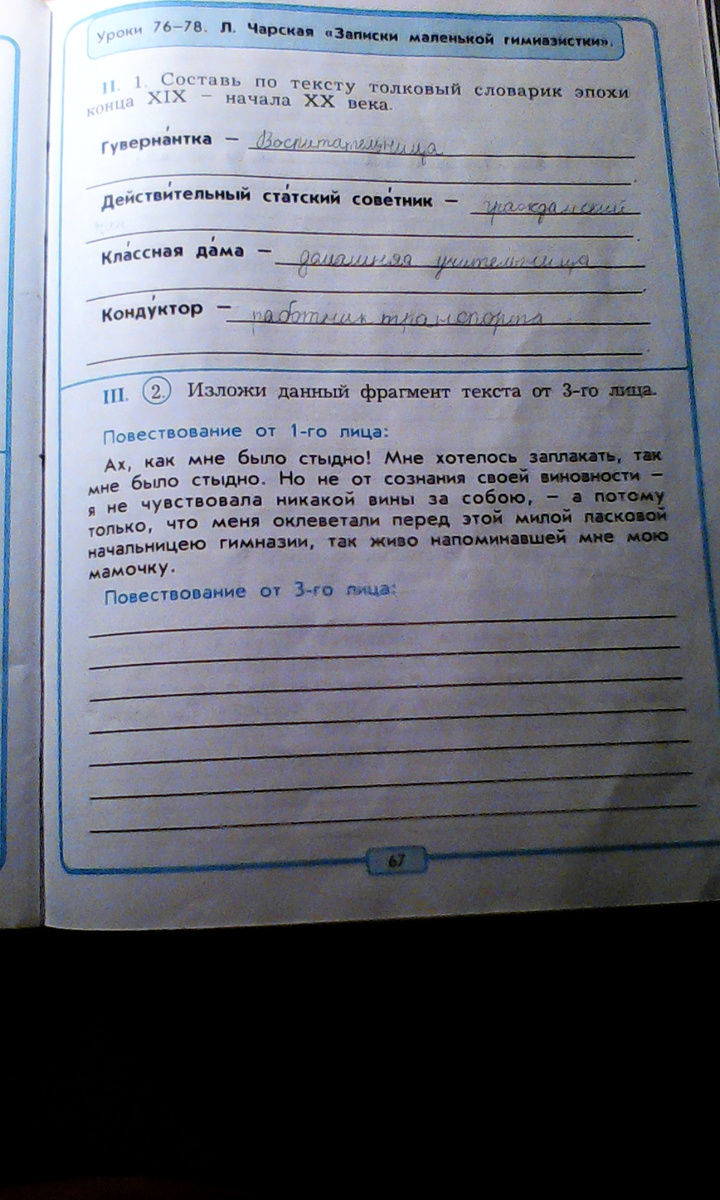 Уроки 76–78. Л. Чарская «Записки маленькой гимназистки».
II. 1. Составь по тексту толковый словарик эпохи
конца XIX – начала XX века.
Гуверна́нтка – Воспитательница
Действи́тельный ста́тский сове́тник – гражданский
Кла́ссная да́ма – домашняя учительница
Конду́ктор – работник транспорта
III. 2. Изложи данный фрагмент текста от 3-го лица.
Повествование от 1-го лица:
Ах, как мне было стыдно! Мне хотелось заплакать, так
мне было стыдно. Но не от сознания своей виновности –
я не чувствовала никакой вины за собою, – а потому
только, что меня оклеветали перед этой милой ласковой
начальницею гимназии, так живо напоминавшей мне мою
мамочку.
Повествование от 3-го лица:
67